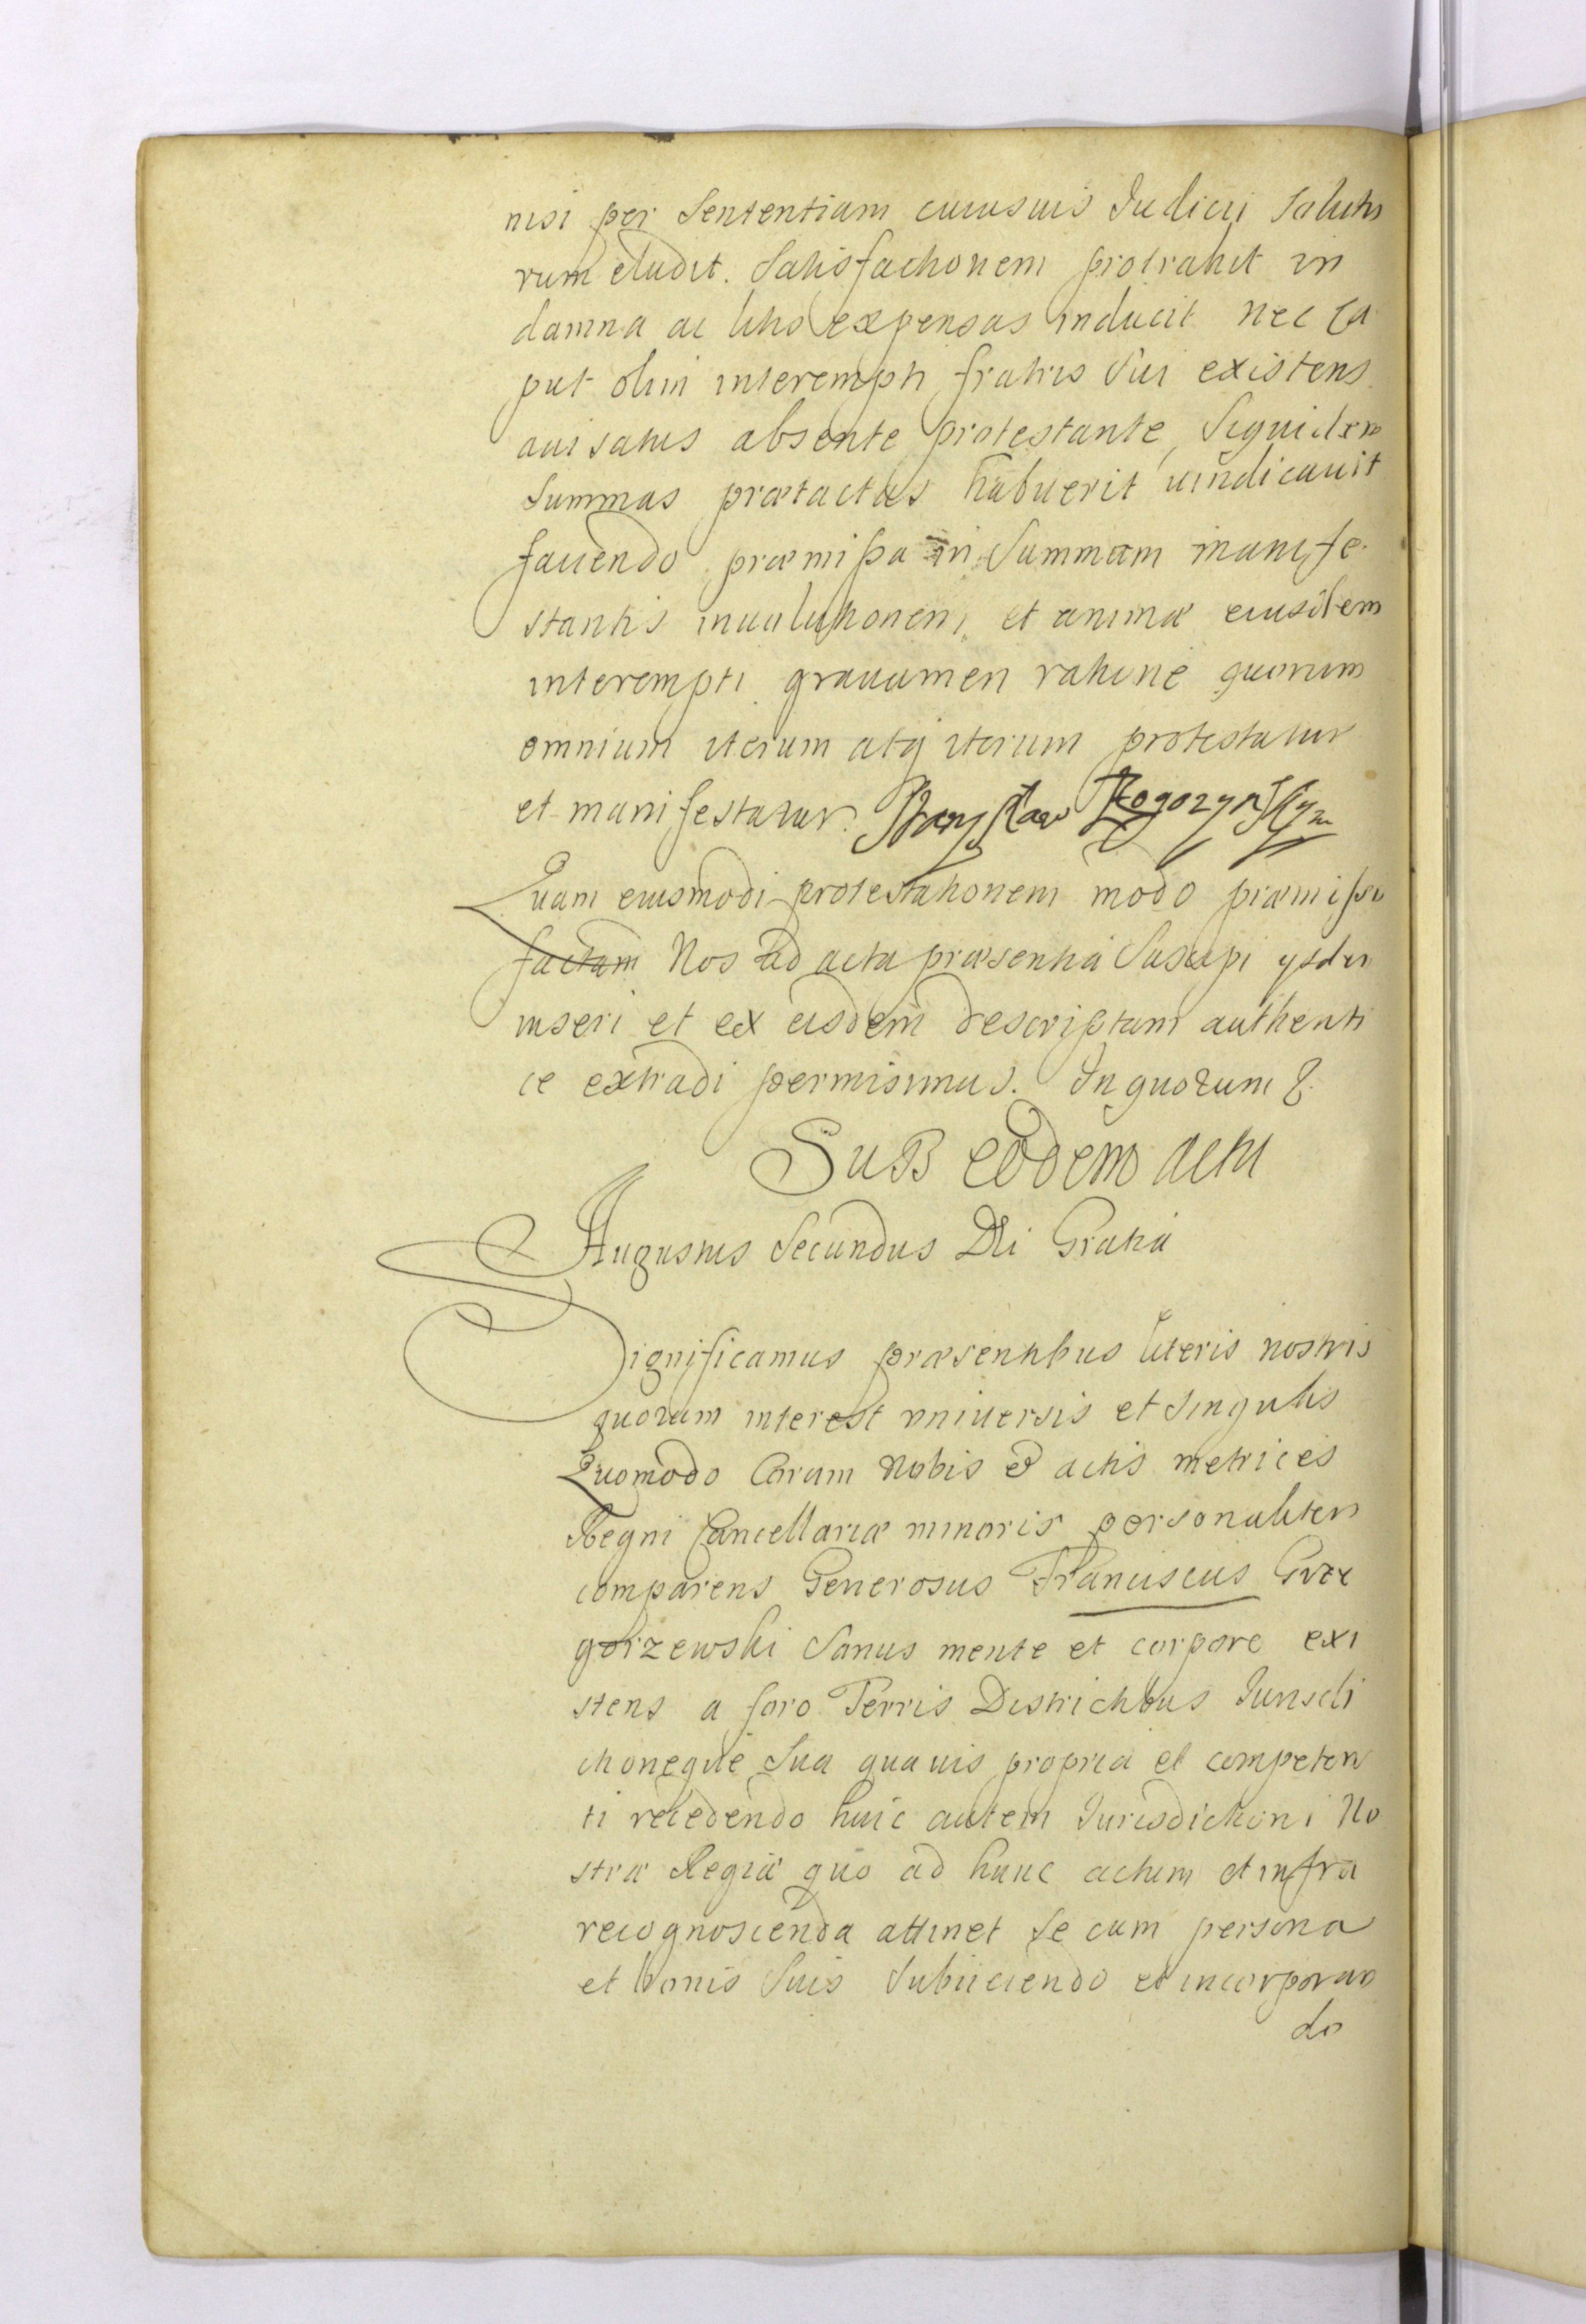 nisi per Sententiam cuiusuis Iudicij Solutu
rum eludit. Satisfactionem protrahit in
damna ac litis expensas inducit nec Ca
put olim interempti fratris Sui existens
auisatus absente protestante, Siquidem
Summas prætactas habuerit uindicauit
fauendo præmissa in Summam manife-
stantis inuolutionem, et animæ eiusdem
interempti grauamen ratione quorum
omnium iterum atq iterum protestatur
et manifestatur. Stanisław Rogozynsky
Quam eiusmodi protestationem modo præmisso
factam Nos ad acta præsentia Suscipi ijsdem
inseri et ex eisdem descriptam authenti
ce extradi permisimus. In quorum &.
SuB eodem actu
Augustus Secundus DEi Gratia
Significamus præsentibus literis nostris
quorum interest vniuersis et Singulis
Quomodo Coram Nobis et actis metrices
Regni Cancellariæ minoris personaliter
comparens Generosus Franciscus Grze
gorzewski Sanus mente et corpore exi
stens a foro Terris Districtibus Iurisdi
ctioneque Sua quauis propria et competen
ti recedendo huic autem Iurisdictioni No
stræ Regiæ quo ad hunc actum et infra
recognoscenda attinet Se cum persona
et bonis Suis Subijciendo et incorporan
do